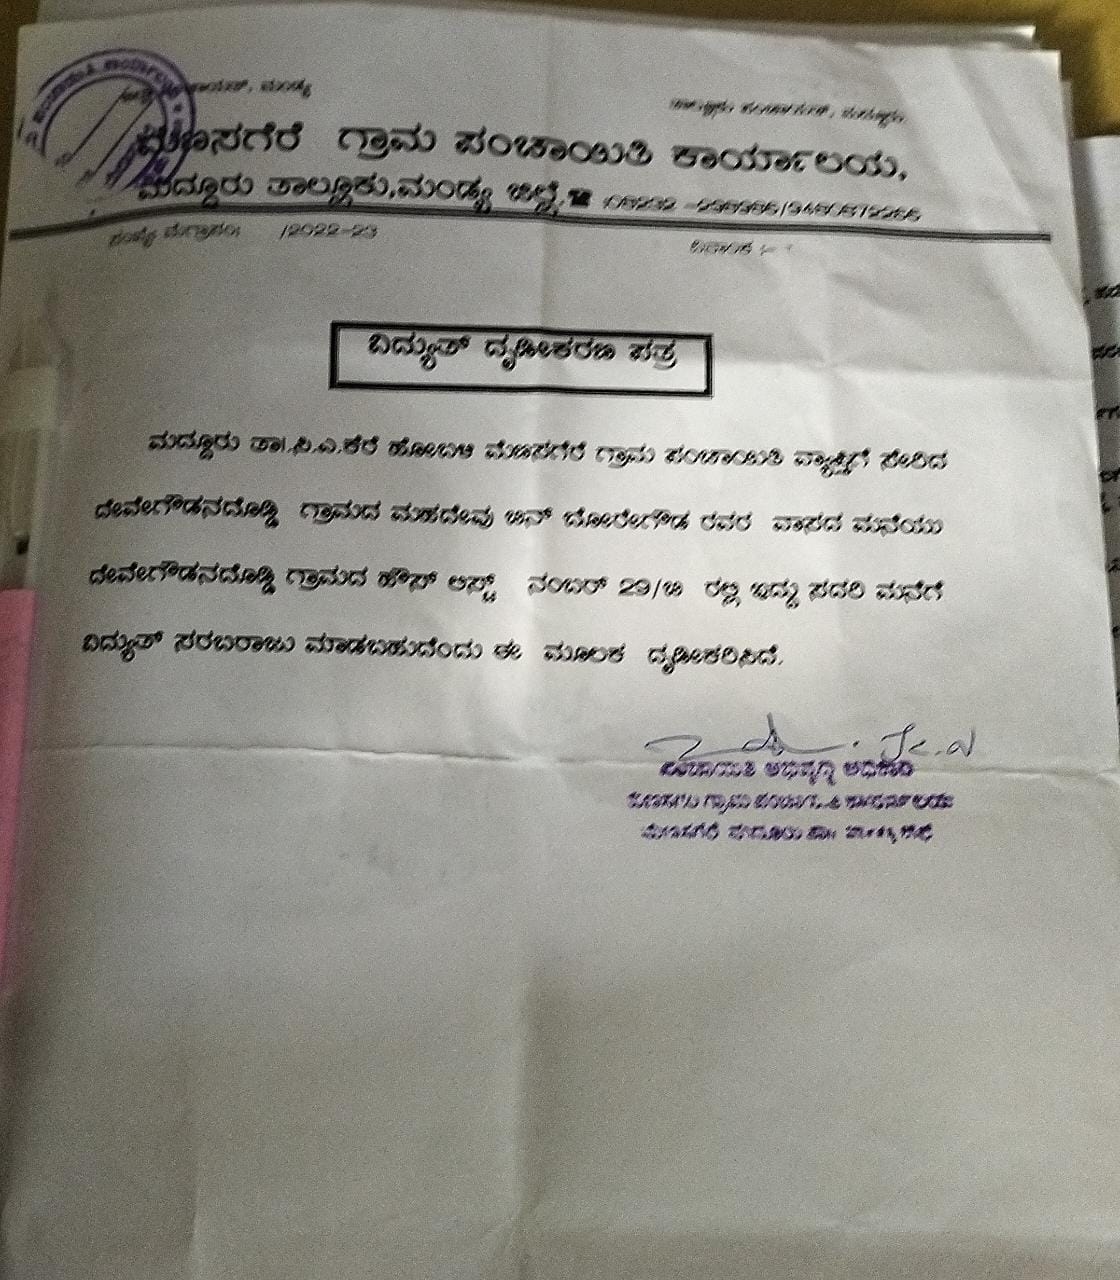 ಮೆಣಸಗೆರೆ ಗ್ರಾಮ ಪಂಚಾಯಿತಿ ಕಾರ್ಯಾಲಯ,
ಮದ್ದೂರು ತಾಲ್ಲೂಕು,ಮಂಡ್ಯ ಜಿಲ್ಲೆ,
/2022-23
ವಿದ್ಯುತ್ ದೃಢೀಕರಣ ಪತ್ರ
ಮದ್ದೂರು ತಾ|.ಸಿ.ಎ.ಕೆರೆ ಹೋಬಳಿ ಮೆಣಸಗೆರೆ ಗ್ರಾಮ ಪಂಚಾಯಿತಿ ವ್ಯಾಪ್ತಿಗೆ ಸೇರಿದ
ದೇವೇಗೌಡನದೊಡ್ಡಿ ಗ್ರಾಮದ ಮಹದೇವು ಬಿನ್ ಬೋರೇಗೌಡ ರವರ ವಾಸದ ಮನೆಯು
ದೇವೇಗೌಡನದೊಡ್ಡಿ ಗ್ರಾಮದ ಹೌಸ್ ಲಿಸ್ಟ್ ನಂಬರ್ 29/ಬಿ ರಲ್ಲಿ ಇದ್ದು ಸದರಿ ಮನೆಗೆ
ವಿದ್ಯುತ್ ಸರಬರಾಜು ಮಾಡಬಹುದೆಂದು ಈ ಮೂಲಕ ದೃಢೀಕರಿಸಿದೆ.
ಪಂಚಾಯಿತಿ ಅಭಿವೃದ್ಧಿ ಅಧಿಕಾರಿ
ಗ್ರಾಮ ಪಂಚಾಯಿತಿ ಕಾರ್ಯಾಲಯ